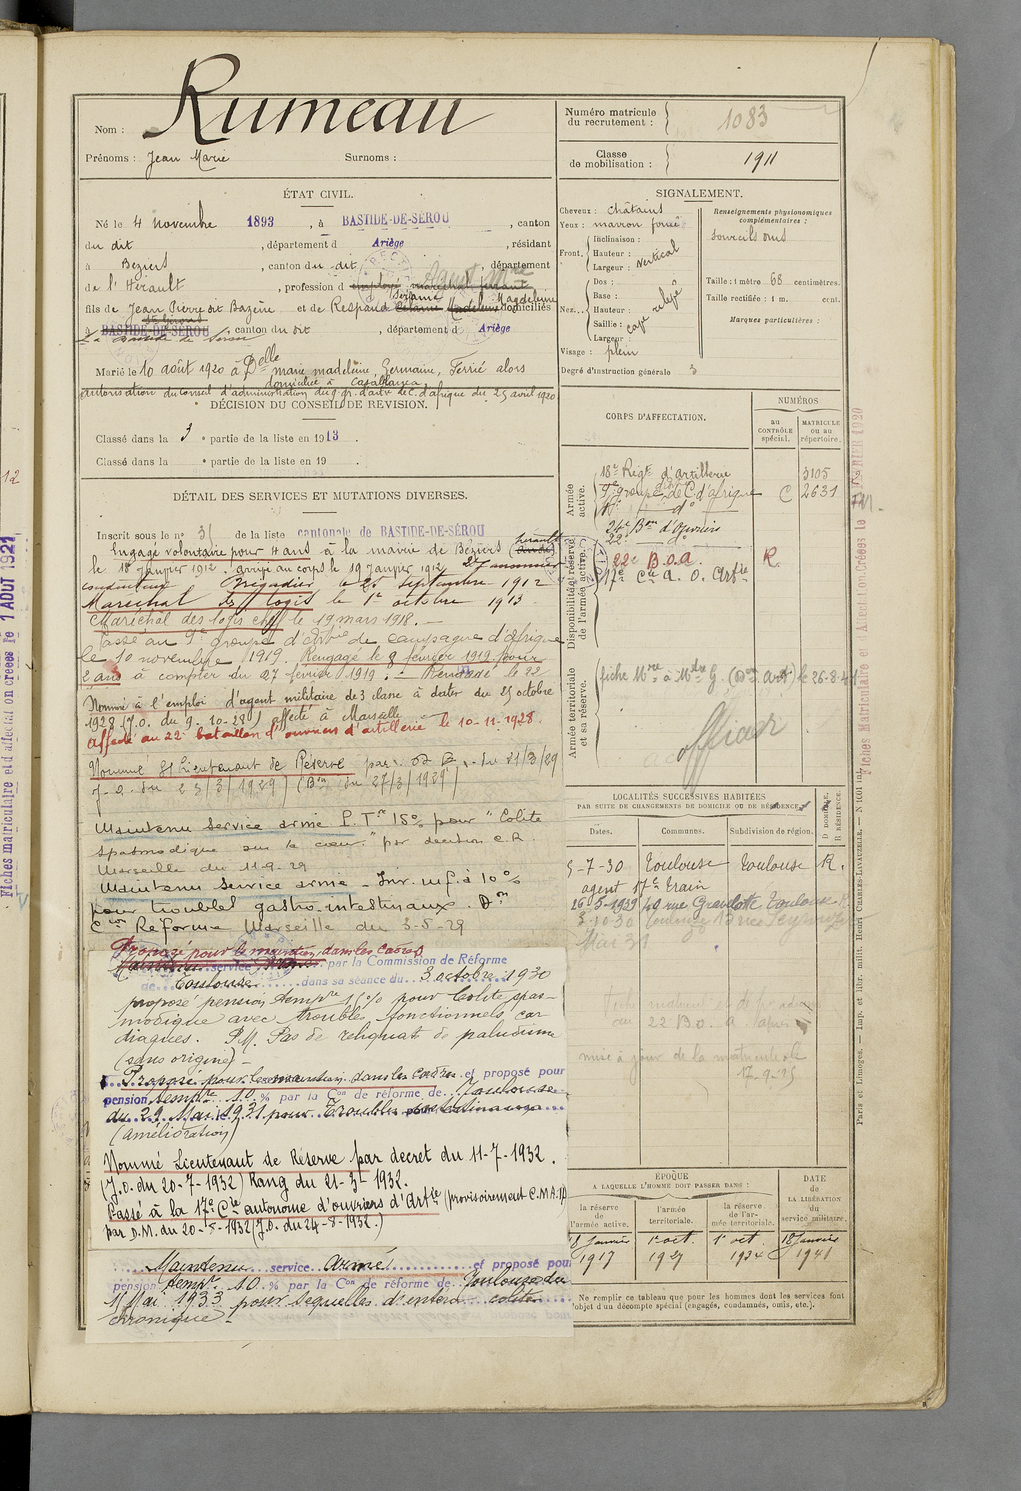 Rumeau
Nom :
Prénoms : Jean Marie Surnoms :
Numéro matricule du recrutement : 1083
Classe de mobilisation : 1911
ÉTAT CIVIL.
Né le 4 novembre 1893, à BASTIDE-DE-SÉROU, canton
du dit, département d Ariège, résidant
à Béziers, canton du dit, département
de l'Hérault, profession d employé maréchal ferrant Agent Mre
fils de Jean Pierre dit Bazène et de Respaud Magdeleine domiciliés
à BASTIDE-DE-SÉROU, canton du dit, département d Ariège
Marié le 10 août 1920 à Delle marie madeleine, Germaine, Ferrié alors
domiciliée à Casablanca
autorisation du conseil d'administration du 9e gr. d'artie de C. d'afrique du 25 avril 1920
DÉCISION DU CONSEIL DE REVISION.
Classé dans la 3 e partie de la liste en 1913.
Classé dans la e partie de la liste en 19 .
DÉTAIL DES SERVICES ET MUTATIONS DIVERSES.
Inscrit sous le n° 31 de la liste cantonale de BASTIDE-DE-SÉROU
Engagé volontaire pour 4 ans à la mairie de Béziers (Hérault)
le 18 Janvier 1912. arrivé au corps le 19 Janvier 1912 2e canonnier
conducteur Brigadier le 25 septembre 1912
Maréchal des logis le 1er octobre 1913
Maréchal des logis chef le 19 mars 1918.
Passé au 9e groupe d'artie de campagne d'afrique
le 10 novembre 1919. Rengagé le 8 février 1919 pour
2 ans à compter du 27 février 1919. Rengagé le 22
Nommé à l'emploi d'agent militaire de 3 classe à dater du 25 octobre
1928 (J.O. du 9-10-28) affecté à Marseille
affecté au 22e bataillon d'ouvriers d'artillerie le 10-11-1928.
Nommé St Lieutenant de Réserve par du 21/3/29
J.O. du 23/3/1929) (Bon du 27/3/1929)
Maintenu Service armé P. Tre 15% pour "Colite
spasmodique sur le cœur." par décision C.R
Marseille du 11-9-29
Maintenu Service armé - Inv. inf. à 10%
pour troubles gastro-intestinaux. Don
Con Réforme Marseille du 3-5-29
Proposé pour le maintien dans les Cadres
Maintenu service armé par la Commission de Réforme
de Toulouse dans sa séance du 3 octobre 1930
proposé pension tempre 10% pour Colite spas-
modique avec troubles fonctionnels car
diaques. P.M. Pas de reliquat de paludisme
(sans origine)
Proposé pour le maintien dans les Cadres et proposé pour
pension tempre 10 % par la Con de réforme de Toulouse
du 29 Mai 1931 pour Troubles
(amélioration)
Nommé Lieutenant de Réserve par decret du 11-7-1932.
(J.O. du 20-7-1932) Rang du 21-3-1932.
Passé à la 17e Cie autonome d'ouvriers d'Artie (provisoirement C.M.A.17)
par D.M. du 20-5-1932 (J.O. du 24-8-1932.)
Maintenu service armé et proposé pour
pension tempre 10 % par la Con de réforme de Toulouse du
11 Mai 1933 pour sequelles d'entéro colite
chronique
SIGNALEMENT.
Cheveux : châtains
Yeux : marron foncé
Front. Inclinaison :
Hauteur : vertical
Largeur :
Nez. Dos :
Base :
Hauteur : relevé
Saillie : cave
Largeur :
Visage : plein
Degré d'instruction générale 3
Renseignements physionomiques complémentaires :
sourcils
Taille : 1 mètre 68 centimètres.
Taille rectifiée : 1 m. cent.
Marques particulières :
CORPS D'AFFECTATION.
NUMÉROS
au CONTRÔLE spécial.
MATRICULE ou au répertoire.
Armée active.
18e Régt d'artillerie 3105
9e groupe de C d'afrique C 2631
24e Bon d'Ouvriers
22e do
Disponibilité et réserve de l'armée active.
22e B.O.A. R.
17e Cie A. O. Artie
Armée territoriale et sa réserve.
fiche Mre à Mdre G. le 26-8-41
officier
LOCALITÉS SUCCESSIVES HABITÉES
PAR SUITE DE CHANGEMENTS DE DOMICILE OU DE RÉSIDENCE.
Dates. Communes. Subdivision de région. D DOMICILE. R RÉSIDENCE.
5-7-30 Toulouse Toulouse R.
agent 17e Train
26-5-1939 40 rue Gravelotte Toulouse R
3-10-30 Toulouse
Mai 31
22 B.O.A.
mise à jour de la matricule le
17-9-35
ÉPOQUE
A LAQUELLE L'HOMME DOIT PASSER DANS :
la réserve de l'armée active.
l'armée territoriale.
la réserve de l'armée territoriale.
DATE DE LA LIBÉRATION du service militaire.
18 Janvier 1917
1er oct. 1927
1er oct. 1934
18 Janvier 1941
Ne remplir ce tableau que pour les hommes dont les services font
l'objet d'un décompte spécial (engagés, condamnés, omis, etc.).
Paris et Limoges. — Imp. et libr. milit. Henri CHARLES-LAVAUZELLE. — N 1001 int.
Fiches Matriculaire et d'Affectation Créées le FÉVRIER 1920
Fiches matriculaire et d'affectation créées le 1 AOUT 1921
12